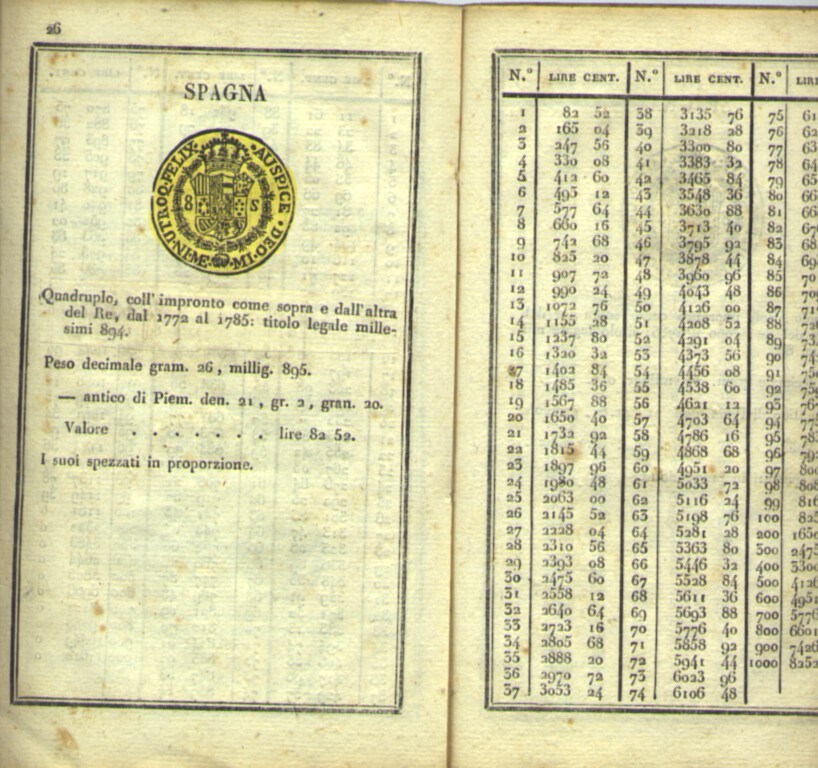 26
SPAGNA
AUSPICE · DEO ·
IN·UTROQ·FELIX·
8 S
Quadruplo, coll' impronto come sopra e dall'altra
del Re, dal 1772 al 1785: titolo legale mille-
simi 894.
Peso decimale gram. 26, millig. 895.
— antico di Piem. den. 21, gr. 2, gran. 20.
Valore . . . . . . . lire 82 52.
I suoi spezzati in proporzione.
N.° LIRE CENT. N.° LIRE CENT. N.°
1 82 52 38 3135 76 75
2 165 04 39 3218 28 76
3 247 56 40 3300 80 77
4 330 08 41 3383 32 78
5 412 60 42 3465 84 79
6 495 12 43 3548 36 80
7 577 64 44 3630 88 81
8 660 16 45 3713 40 82
9 742 68 46 3795 92 83
10 825 20 47 3878 44 84
11 907 72 48 3960 96 85
12 990 24 49 4043 48 86
13 1072 76 50 4126 00 87
14 1155 28 51 4208 52 88
15 1237 80 52 4291 04 89
16 1320 32 53 4373 56 90
17 1402 84 54 4456 08 91
18 1485 36 55 4538 60 92
19 1567 88 56 4621 12 93
20 1650 40 57 4703 64 94
21 1732 92 58 4786 16 95
22 1815 44 59 4868 68 96
23 1897 96 60 4951 20 97
24 1980 48 61 5033 72 98
25 2063 00 62 5116 24 99
26 2145 52 63 5198 76 100
27 2228 04 64 5281 28 200
28 2310 56 65 5363 80 300
29 2393 08 66 5446 32 400
30 2475 60 67 5528 84 500
31 2558 12 68 5611 36 600
32 2640 64 69 5693 88 700
33 2723 16 70 5776 40 800
34 2805 68 71 5858 92 900
35 2888 20 72 5941 44 1000
36 2970 72 73 6023 96
37 3053 24 74 6106 48